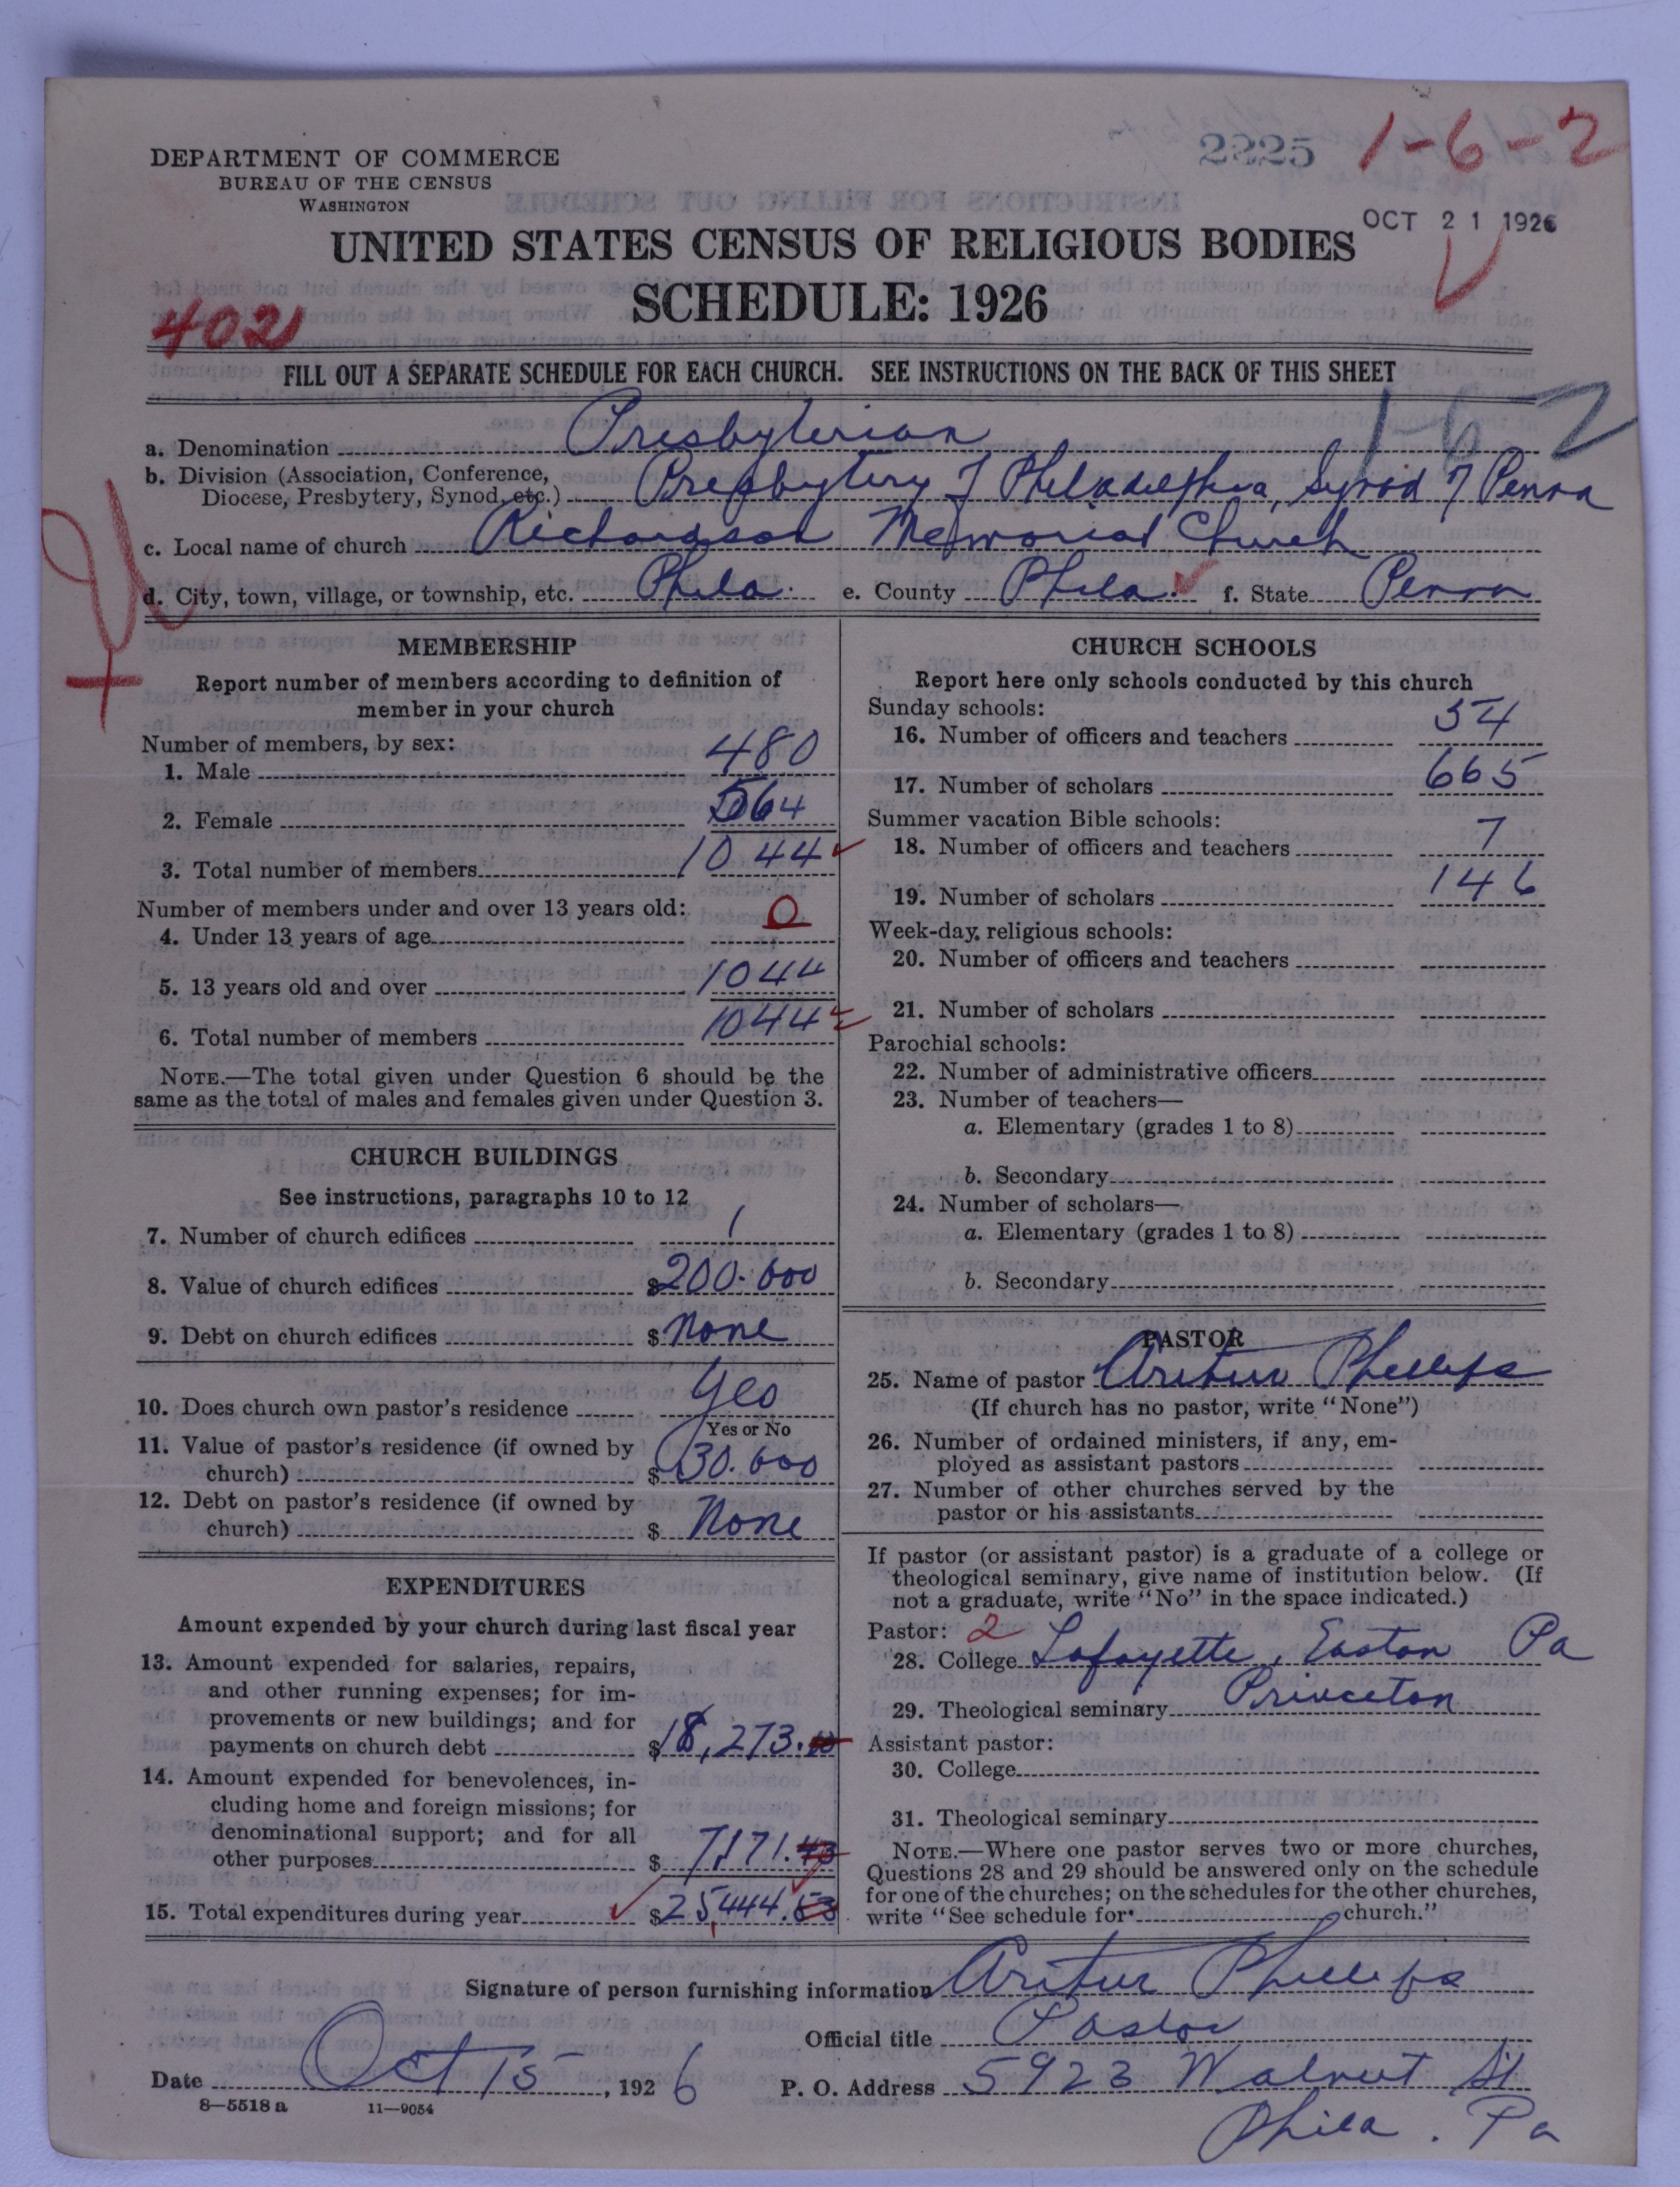 2225 1-6-2
DEPARTMENT OF COMMERCE
BUREAU OF THE CENSUS
WASHINGTON
OCT 21 1926
UNITED STATES CENSUS OF RELIGIOUS BODIES
SCHEDULE: 1926
402
FILL OUT A SEPARATE SCHEDULE FOR EACH CHURCH. SEE INSTRUCTIONS ON THE BACK OF THIS SHEET
1-6-2
a. Denomination Presbyterian
b. Division (Association, Conference, Diocese, Presbytery, Synod, etc.) Presbytery of Philadelphia, Synod of Penna
c. Local name of church Richardson Memorial Church
d. City, town, village, or township, etc. Phila. e. County Phila. f. State Penna
MEMBERSHIP
Report number of members according to definition of
member in your church
Number of members, by sex:
1. Male 480
2. Female 564
3. Total number of members 1044
Number of members under and over 13 years old:
4. Under 13 years of age 0
5. 13 years old and over 1044
6. Total number of members 1044
NOTE.—The total given under Question 6 should be the
same as the total of males and females given under Question 3.
CHURCH BUILDINGS
See instructions, paragraphs 10 to 12
7. Number of church edifices 1
8. Value of church edifices $200.000
9. Debt on church edifices $None
10. Does church own pastor's residence Yes
Yes or No
11. Value of pastor's residence (if owned by
church) $30.000
12. Debt on pastor's residence (if owned by
church) $None
EXPENDITURES
Amount expended by your church during last fiscal year
13. Amount expended for salaries, repairs,
and other running expenses; for im-
provements or new buildings; and for
payments on church debt $18,273.
14. Amount expended for benevolences, in-
cluding home and foreign missions; for
denominational support; and for all
other purposes $7,171.43
15. Total expenditures during year $25,444.53
CHURCH SCHOOLS
Report here only schools conducted by this church
Sunday schools:
16. Number of officers and teachers 54
17. Number of scholars 665
Summer vacation Bible schools:
18. Number of officers and teachers 7
19. Number of scholars 146
Week-day religious schools:
20. Number of officers and teachers
21. Number of scholars
Parochial schools:
22. Number of administrative officers
23. Number of teachers—
a. Elementary (grades 1 to 8)
b. Secondary
24. Number of scholars—
a. Elementary (grades 1 to 8)
b. Secondary
PASTOR
25. Name of pastor Arthur Phillips
(If church has no pastor, write "None")
26. Number of ordained ministers, if any, em-
ployed as assistant pastors
27. Number of other churches served by the
pastor or his assistants
If pastor (or assistant pastor) is a graduate of a college or
theological seminary, give name of institution below. (If
not a graduate, write "No" in the space indicated.)
Pastor: 2
28. College Lafayette, Easton Pa
29. Theological seminary Princeton
Assistant pastor:
30. College
31. Theological seminary
NOTE.—Where one pastor serves two or more churches,
Questions 28 and 29 should be answered only on the schedule
for one of the churches; on the schedules for the other churches,
write "See schedule for church."
Signature of person furnishing information Arthur Phillips
Official title Pastor
Date Oct 15, 1926 P. O. Address 5923 Walnut St
Phila. Pa
8—5518 a 11—9054